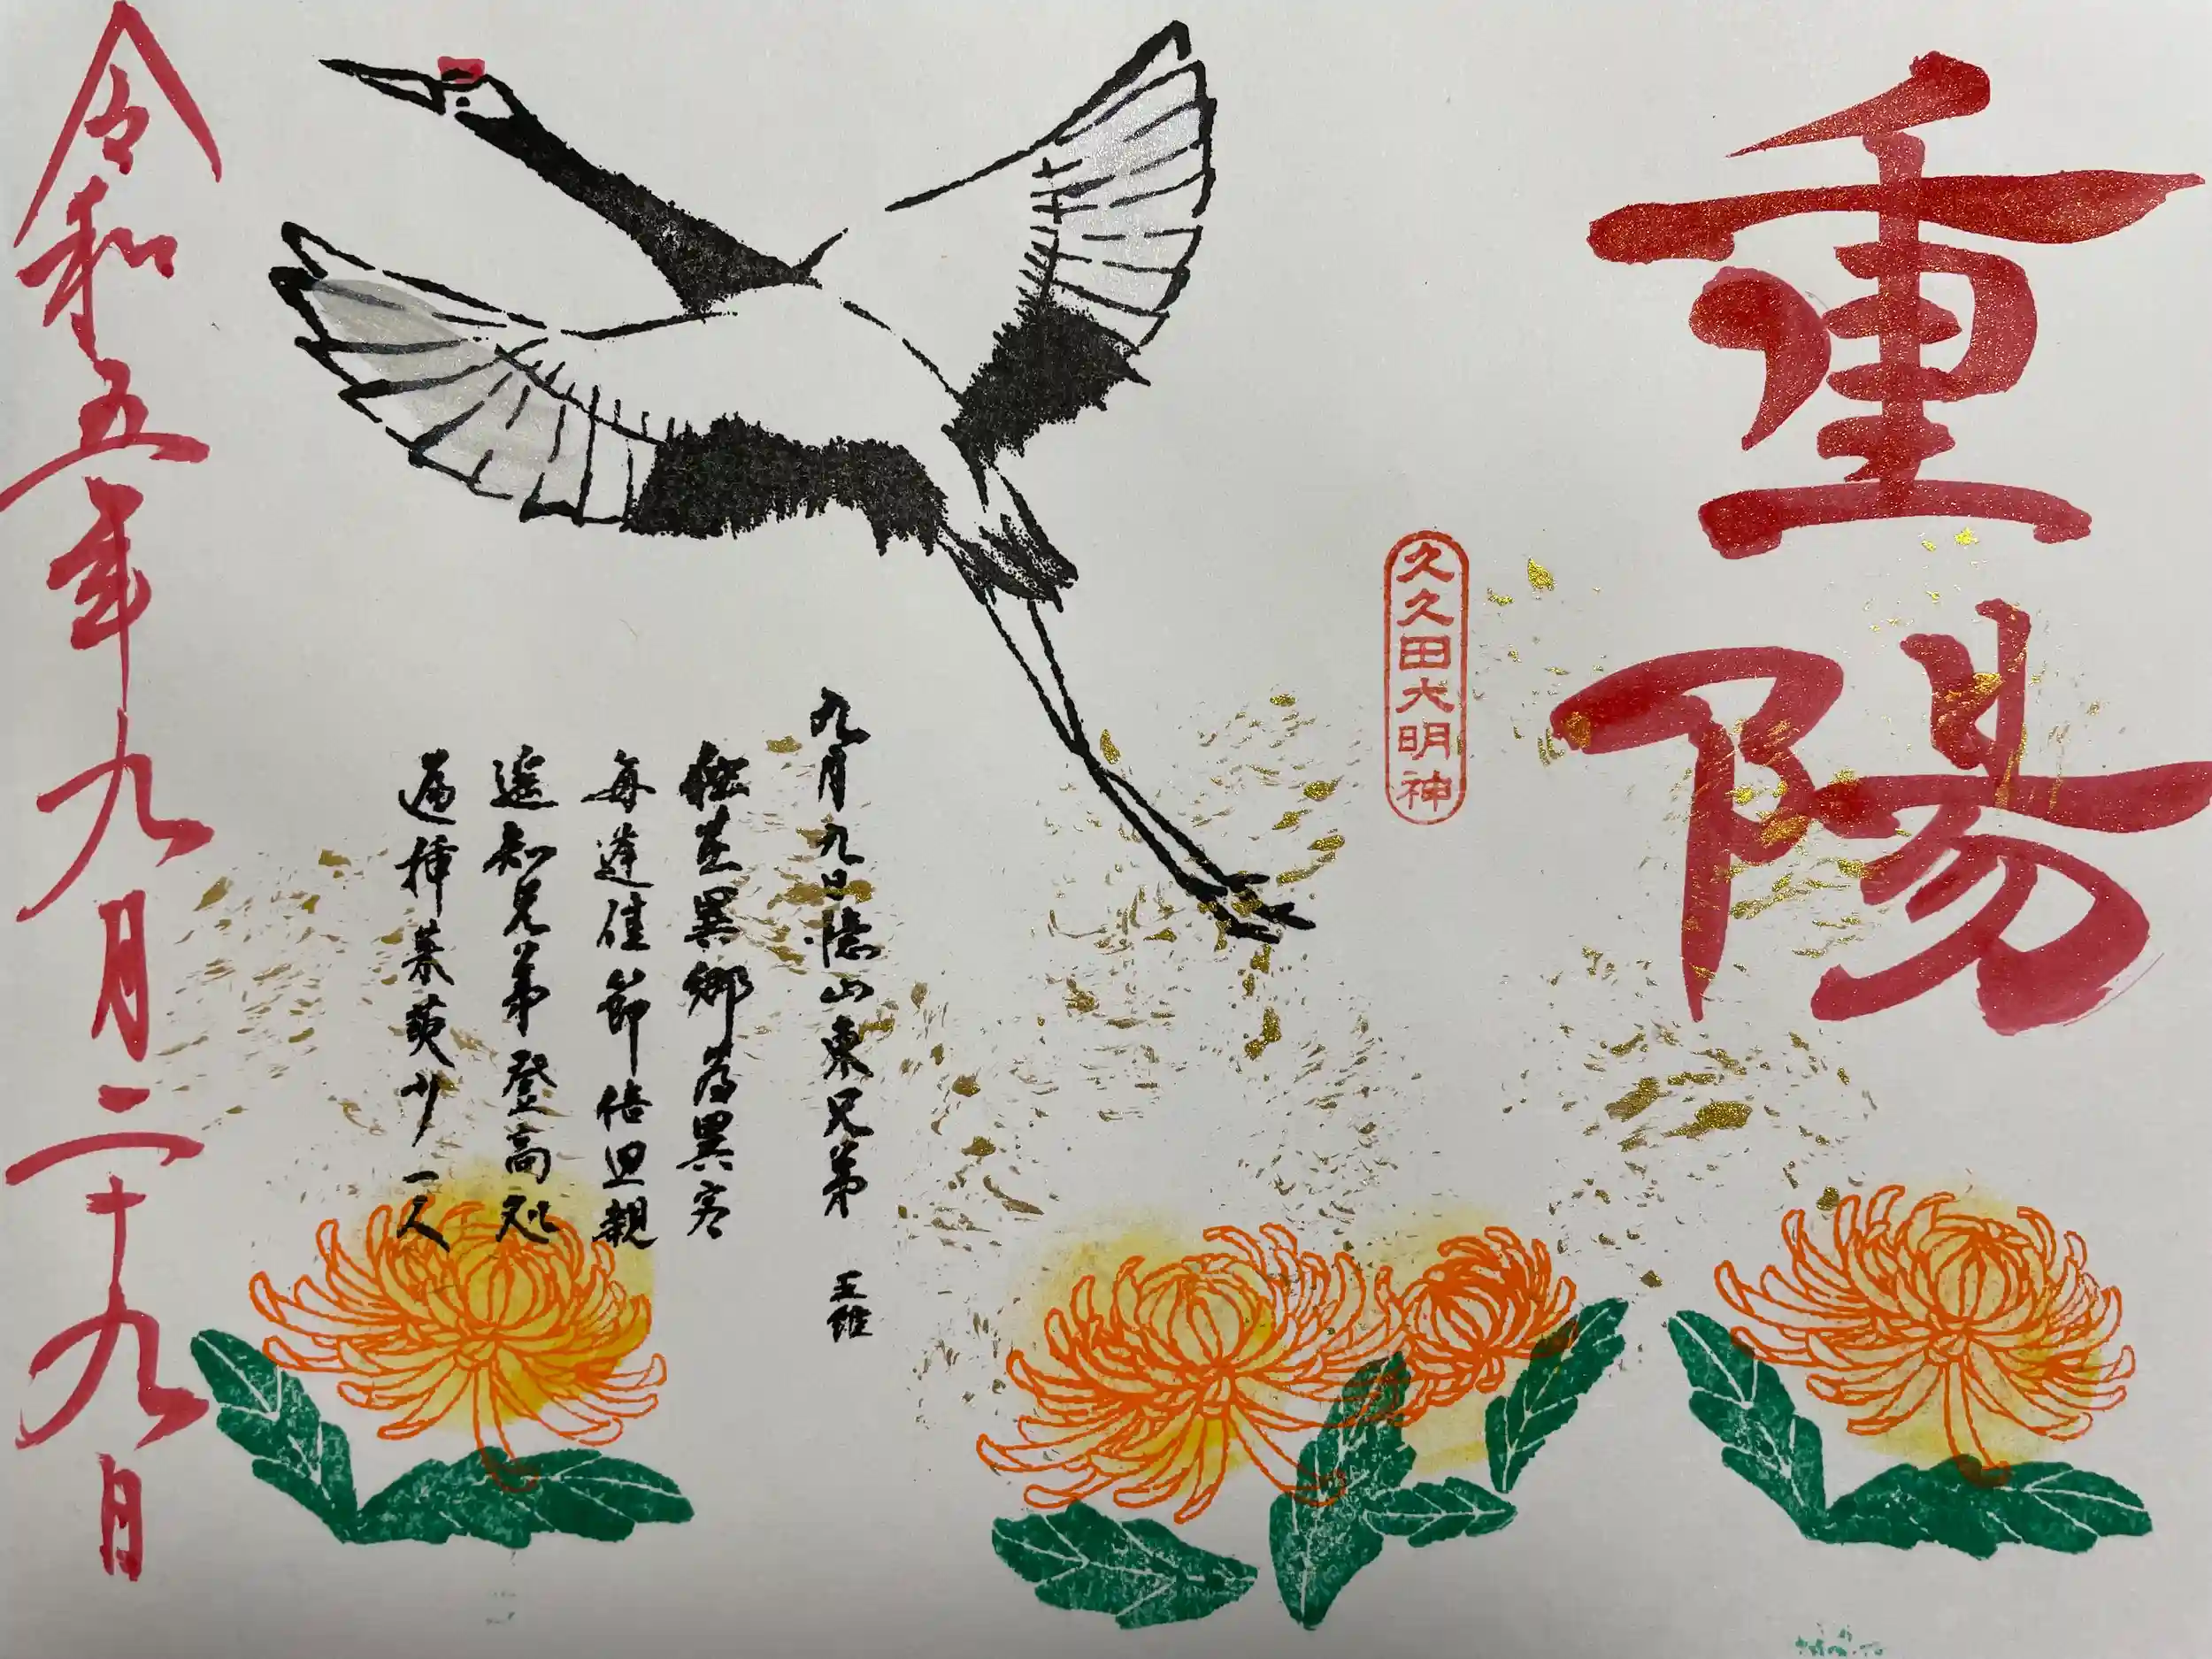 重陽
久久田大明神
九月九日憶山東兄弟 王維
独在異郷為異客
每逢佳節倍思親
遥知兄弟登高処
遍挿茱萸少一人
令和五年九月二十九日